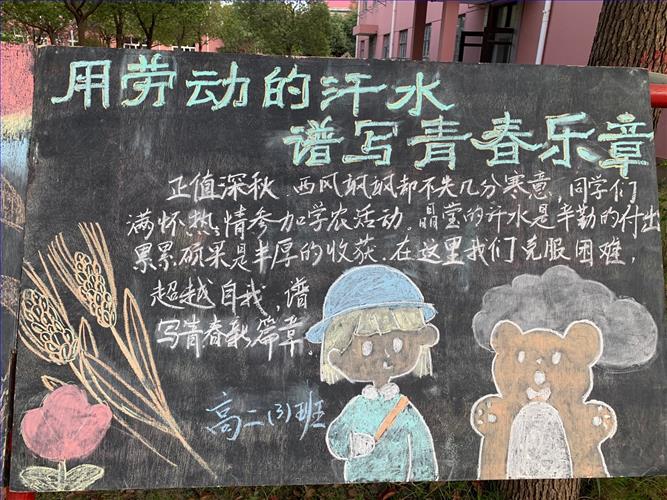 用劳动的汗水
谱写青春乐章
正值深秋，西风飒飒却不失几分寒意，同学们
满怀热情参加学农活动。晶莹的汗水是辛勤的付出
累累硕果是丰厚的收获.在这里我们克服困难，
超越自我，谱
写青春新篇章.
高二(3)班